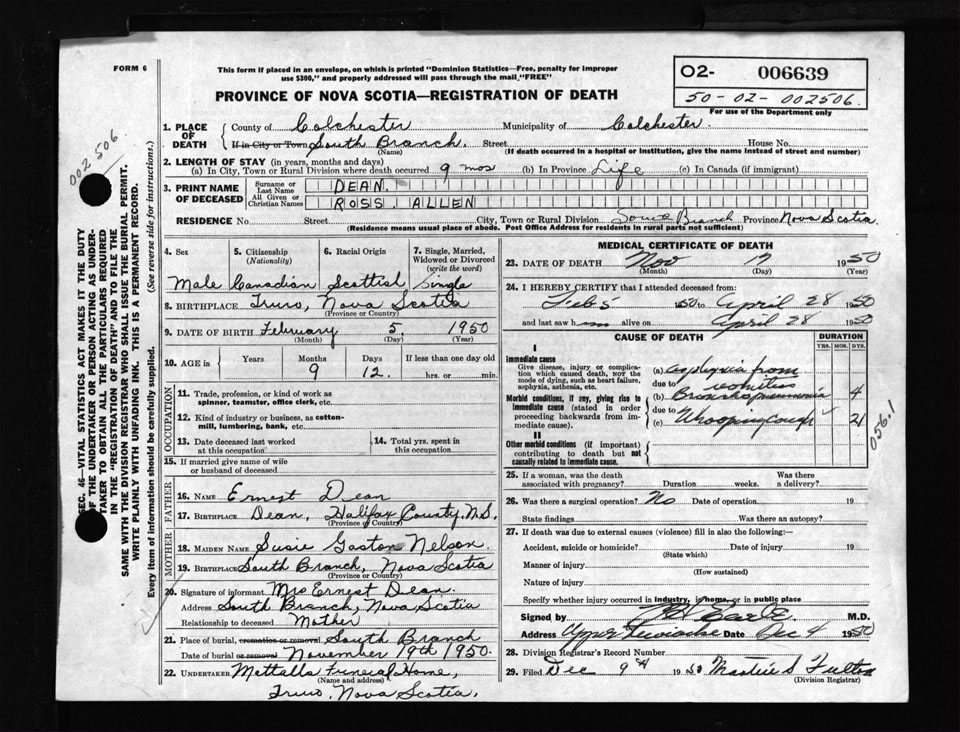 FORM 6
This form if placed in an envelope, on which is printed "Dominion Statistics—Free, penalty for improper
use $300," and properly addressed will pass through the mail "FREE"
PROVINCE OF NOVA SCOTIA—REGISTRATION OF DEATH
02- 006639
50-02-002506.
For use of the Department only
002506
SEC. 46—VITAL STATISTICS ACT MAKES IT THE DUTY
OF THE UNDERTAKER OR PERSON ACTING AS UNDER-
TAKER TO OBTAIN ALL THE PARTICULARS REQUIRED
IN THE "REGISTRATION OF DEATH" AND TO FILE THE
SAME WITH THE DIVISION REGISTRAR WHO SHALL ISSUE THE BURIAL PERMIT.
WRITE PLAINLY WITH UNFADING INK. THIS IS A PERMANENT RECORD.
Every item of information should be carefully supplied. (See reverse side for instructions.)
1. PLACE OF DEATH County of Colchester Municipality of Colchester.
If in City or Town South Branch. Street House No.
(Name) (If death occurred in a hospital or institution, give the name instead of street and number)
2. LENGTH OF STAY (in years, months and days)
(a) In City, Town or Rural Division where death occurred 9 mos (b) In Province Life (c) In Canada (if immigrant)
3. PRINT NAME OF DECEASED Surname or Last Name DEAN.
All Given or Christian Names ROSS. ALLEN
RESIDENCE No. Street City, Town or Rural Division South Branch Province Nova Scotia.
(Residence means usual place of abode. Post Office Address for residents in rural parts not sufficient)
4. Sex 5. Citizenship (Nationality) 6. Racial Origin 7. Single, Married, Widowed or Divorced (write the word)
Male Canadian Scottish Single
8. BIRTHPLACE Truro, Nova Scotia
(Province or Country)
9. DATE OF BIRTH February 5. 1950
(Month) (Day) (Year)
10. AGE in Years Months Days If less than one day old
9 12. hrs. or min.
OCCUPATION
11. Trade, profession, or kind of work as
spinner, teamster, office clerk, etc.
12. Kind of industry or business, as cotton-
mill, lumbering, bank, etc.
13. Date deceased last worked
at this occupation
14. Total yrs. spent in
this occupation
15. If married give name of wife
or husband of deceased
FATHER
16. NAME Ernest Dean
17. BIRTHPLACE Dean, Halifax County, N.S.
(Province or Country)
MOTHER
18. MAIDEN NAME Susie Gaston Nelson.
19. BIRTHPLACE South Branch, Nova Scotia
(Province or Country)
20. Signature of informant Mrs Ernest Dean
Address South Branch, Nova Scotia
Relationship to deceased Mother
21. Place of burial, cremation or removal South Branch
Date of burial or removal November 19th 1950.
22. UNDERTAKER Mattalla Funeral Home,
(Name and address)
Truro, Nova Scotia,
MEDICAL CERTIFICATE OF DEATH
23. DATE OF DEATH Nov 17 1950
(Month) (Day) (Year)
24. I HEREBY CERTIFY that I attended deceased from:
Feb 5 1950 to April 28 1950
and last saw him alive on April 28 1950
CAUSE OF DEATH DURATION
YRS. MOS. DYS.
I
Immediate cause
Give disease, injury or complica-
tion which caused death, NOT the
mode of dying, such as heart failure,
asphyxia, asthenia, etc.
(a) asphyxia from
due to vomitus
Morbid conditions, if any, giving rise to
immediate cause (stated in order
proceeding backwards from im-
mediate cause).
(b) Bronchopneumonia 4
due to
(c) Whooping Cough 21
056.1
II
Other morbid conditions (if important)
contributing to death but not
causally related to immediate cause.
25. If a woman, was the death
associated with pregnancy? Duration weeks. Was there
a delivery?
26. Was there a surgical operation? No Date of operation 19
State findings Was there an autopsy?
27. If death was due to external causes (violence) fill in also the following:—
Accident, suicide or homicide? Date of injury 19
(State which)
Manner of injury
(How sustained)
Nature of injury
Specify whether injury occurred in industry, in home, or in public place
Signed by M.D.
Address Upper Stewiacke Date Dec 4 1950
28. Division Registrar's Record Number
29. Filed Dec 9th 1950 S Fulton
(Division Registrar)